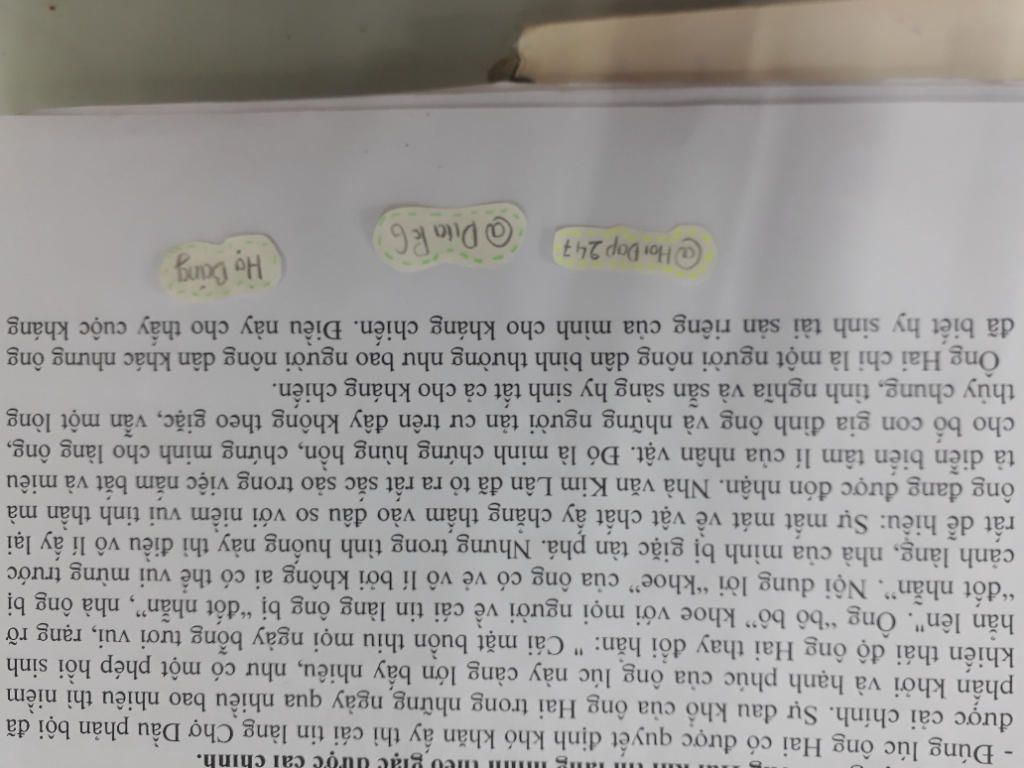 mình theo giặc được cải chính.
- Đúng lúc ông Hai có được quyết định khó khăn ấy thì cái tin làng Chợ Dầu phản bội đã
được cải chính. Sự đau khổ của ông Hai trong những ngày qua nhiều bao nhiêu thì niềm
phấn khởi và hạnh phúc của ông lúc này càng lớn bấy nhiêu, như có một phép hồi sinh
khiến thái độ ông Hai thay đổi hẳn: " Cái mặt buồn thiu mọi ngày bỗng tươi vui, rạng rỡ
hẳn lên". Ông "bô bô" khoe với mọi người về cái tin làng ông bị "đốt nhẵn", nhà ông bị
"đốt nhẵn". Nội dung lời "khoe" của ông có vẻ vô lí bởi không ai có thể vui mừng trước
cảnh làng, nhà của mình bị giặc tàn phá. Nhưng trong tình huống này thì điều vô lí ấy lại
rất dễ hiểu: Sự mất mát về vật chất ấy chẳng thấm vào đâu so với niềm vui tinh thần mà
ông đang được đón nhận. Nhà văn Kim Lân đã tỏ ra rất sắc sảo trong việc nắm bắt và miêu
tả diễn biến tâm lí của nhân vật. Đó là minh chứng hùng hồn, chứng minh cho làng ông,
cho bố con gia đình ông và những người tản cư trên đây không theo giặc, vẫn một lòng
thủy chung, tình nghĩa và sẵn sàng hy sinh tất cả cho kháng chiến.
Ông Hai chỉ là một người nông dân bình thường như bao người nông dân khác nhưng ông
đã biết hy sinh tài sản riêng của mình cho kháng chiến. Điều này cho thấy cuộc kháng
@HoiDap247
@DilaRG
Hạ Băng